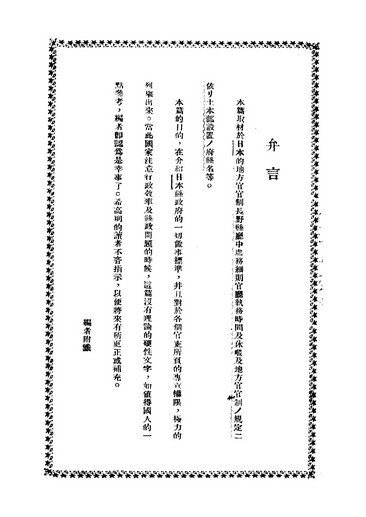 弁言
本篇取材於日本的地方官官制長野縣廳中處務細則官廳執務時間及休暇及地方官官制ノ規定二
依リ土木部設置ノ府縣名等。
本篇的目的，在介紹日本縣政府的一切做事標準，并且對於各個官吏所負的專責權限，極力的
列舉出來。當此國家注意行政效率及縣政問題的時候，這篇沒有理論的硬性文字，如值得國人的一
點參考，編者卽認爲是幸事了。希高明的讀者不吝指示，以便將來有所更正或補充。
編者附識